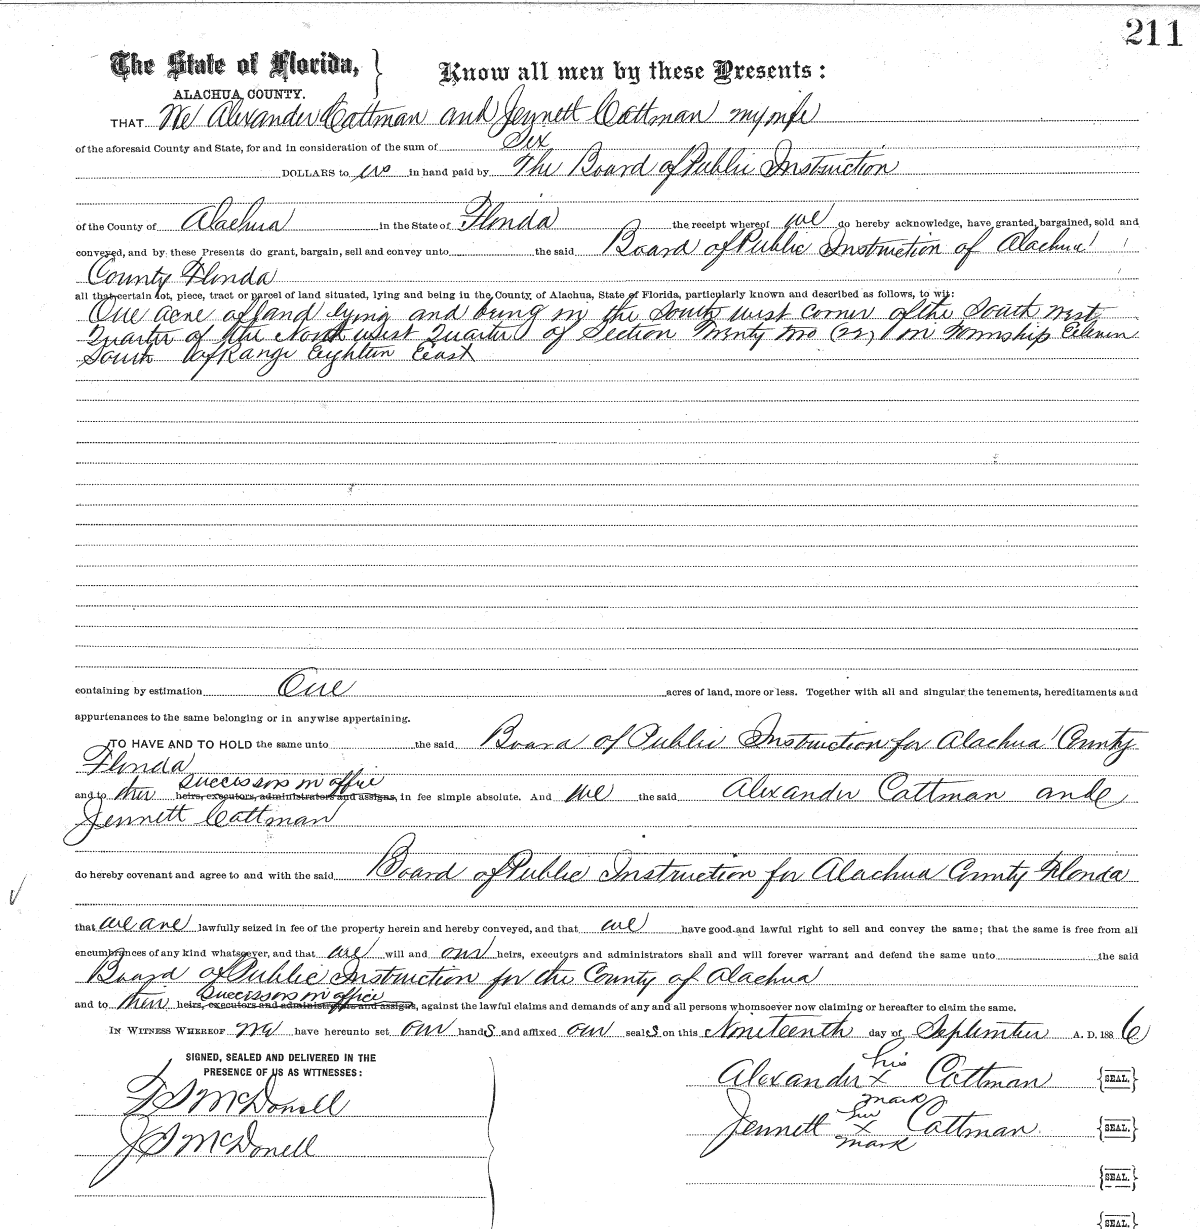 211
The State of Florida, } Know all men by these Presents:
ALACHUA COUNTY.
THAT We Alexander Cattman and Jennett Cattman my wife
of the aforesaid County and State, for and in consideration of the sum of Six
DOLLARS to us in hand paid by The Board of Public Instruction
of the County of Alachua in the State of Florida the receipt whereof we do hereby acknowledge, have granted, bargained, sold and
conveyed, and by these Presents do grant, bargain, sell and convey unto the said Board of Public Instruction of Alachua
County Florida
all that certain lot, piece, tract or parcel of land situated, lying and being in the County of Alachua, State of Florida, particularly known and described as follows, to wit:
One acre of land lying and being in the South west corner of the South west
Quarter of the North west Quarter of Section Twenty two (22) in Township Eleven
South of Range Eighteen East
containing by estimation One acres of land, more or less. Together with all and singular the tenements, hereditaments and
appurtenances to the same belonging or in anywise appertaining.
TO HAVE AND TO HOLD the same unto the said Board of Public Instruction for Alachua County
Florida
successors in office
and to their heirs, executors, administrators and assigns, in fee simple absolute. And we the said Alexander Cattman and
Jennett Cattman
do hereby covenant and agree to and with the said Board of Public Instruction for Alachua County Florida
that we are lawfully seized in fee of the property herein and hereby conveyed, and that we have good and lawful right to sell and convey the same; that the same is free from all
encumbrances of any kind whatsoever, and that we will and our heirs, executors and administrators shall and will forever warrant and defend the same unto the said
Board of Public Instruction for the County of Alachua
successors in office
and to their heirs, executors and administrators and assigns, against the lawful claims and demands of any and all persons whomsoever now claiming or hereafter to claim the same.
IN WITNESS WHEREOF we have hereunto set our hands and affixed our seals on this Nineteenth day of September A. D. 1886
SIGNED, SEALED AND DELIVERED IN THE
PRESENCE OF US AS WITNESSES:
his
Alexander x Cattman {SEAL.}
mark
T S McDonell
her
Jennett x Cattman {SEAL.}
mark
J S McDonell
{SEAL.}
{SEAL.}